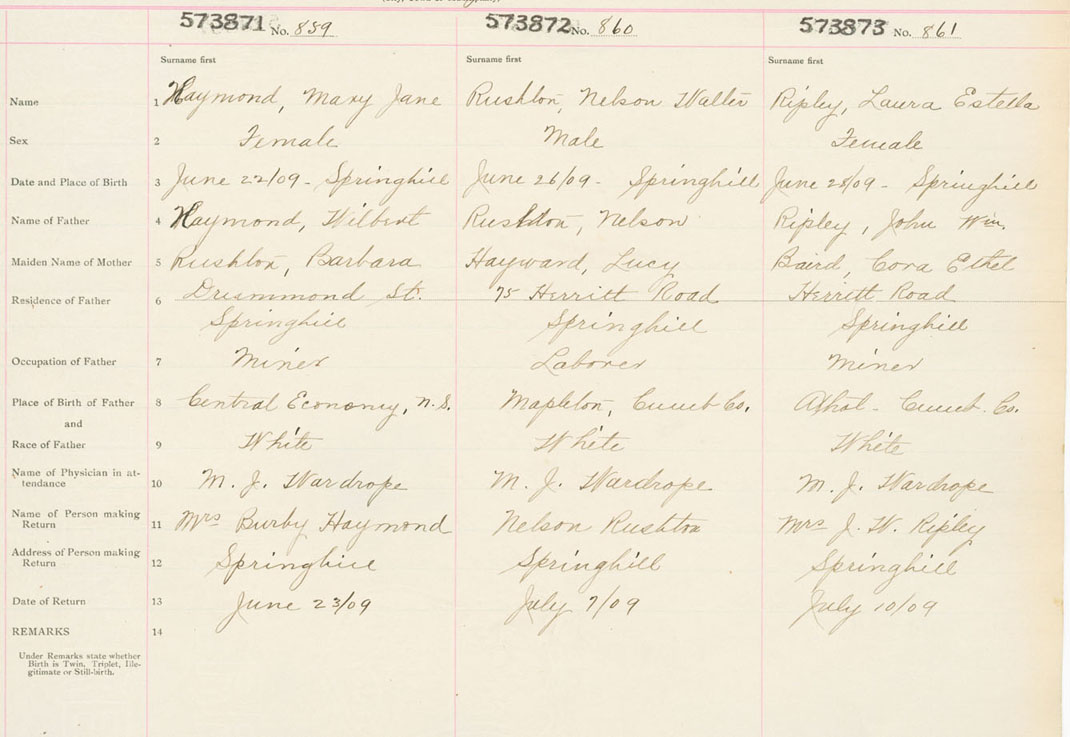 573871 No. 859 573872 No. 860 573873 No. 861
Surname first Surname first Surname first
Name 1 Haymond, Mary Jane Rushton, Nelson Walter Ripley, Laura Estella
Sex 2 Female Male Female
Date and Place of Birth 3 June 22/09 - Springhill June 26/09 - Springhill June 28/09 - Springhill
Name of Father 4 Haymond, Wilbert Rushton, Nelson Ripley, John Wm.
Maiden Name of Mother 5 Rushton, Barbara Hayward, Lucy Baird, Cora Ethel
Residence of Father 6 Drummond St. 75 Herritt Road Herritt Road
Springhill Springhill Springhill
Occupation of Father 7 Miner Laborer Miner
Place of Birth of Father 8 Central Economy, N.S. Mapleton, Cumb Co. Athol - Cumb. Co.
and
Race of Father 9 White White White
Name of Physician in at-
tendance 10 M. J. Wardrope M. J. Wardrope M. J. Wardrope
Name of Person making
Return 11 Mrs Burby Haymond Nelson Rushton Mrs J. W. Ripley
Address of Person making
Return 12 Springhill Springhill Springhill
Date of Return 13 June 23/09 July 7/09 July 10/09
REMARKS 14
Under Remarks state whether
Birth is Twin, Triplet, Ille-
gitimate or Still-birth.